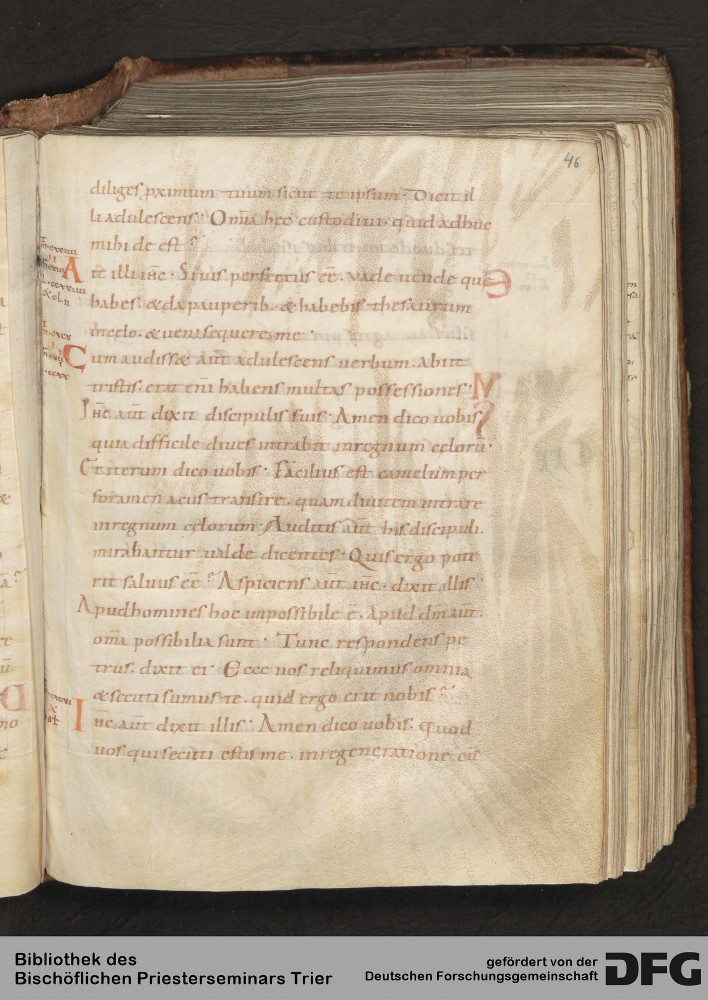 46
diliges pximum tuum sicut te ipsum · Dicit il
li adulescens · Omĩa hec custodiui · quid adhuc
mihi de est
A it illi ihc · Si uis perfectus eē · uade uende que
habes · & da pauperib · & habebis thesaurum
in celo · & ueni sequere me ·
C um audiss& aūt adulescens uerbum · Abiit
tristis · erat enī habens multas possessiones ·
Ihc aūt dixit discipulis suis · Amen dico uobis
quia difficile diues intrabit in regnum celorū ·
Et iterum dico uobis · Facilius est camelum per
foramen acus transire · quam diuitem intrare
in regnum celorum · Auditis aūt his discipuli ·
mirabantur ualde dicentes · Quis ergo pote
rit saluus eē · Aspiciens aūt ihc · dixit illis
Apud homines hoc impossibile ē · Apud dm aūt ·
omīa possibilia sunt · Tunc respondens pe
trus · dixit ei · Ecce nos reliquimus omnia
& secuti sumus te · quid ergo erit nobis
I hc aūt dixit illis · Amen dico uobis · quod
uos qui secuti estis me · in regeneratione cū
Bibliothek des
Bischöflichen Priesterseminars Trier
gefördert von der
Deutschen Forschungsgemeinschaft
DFG